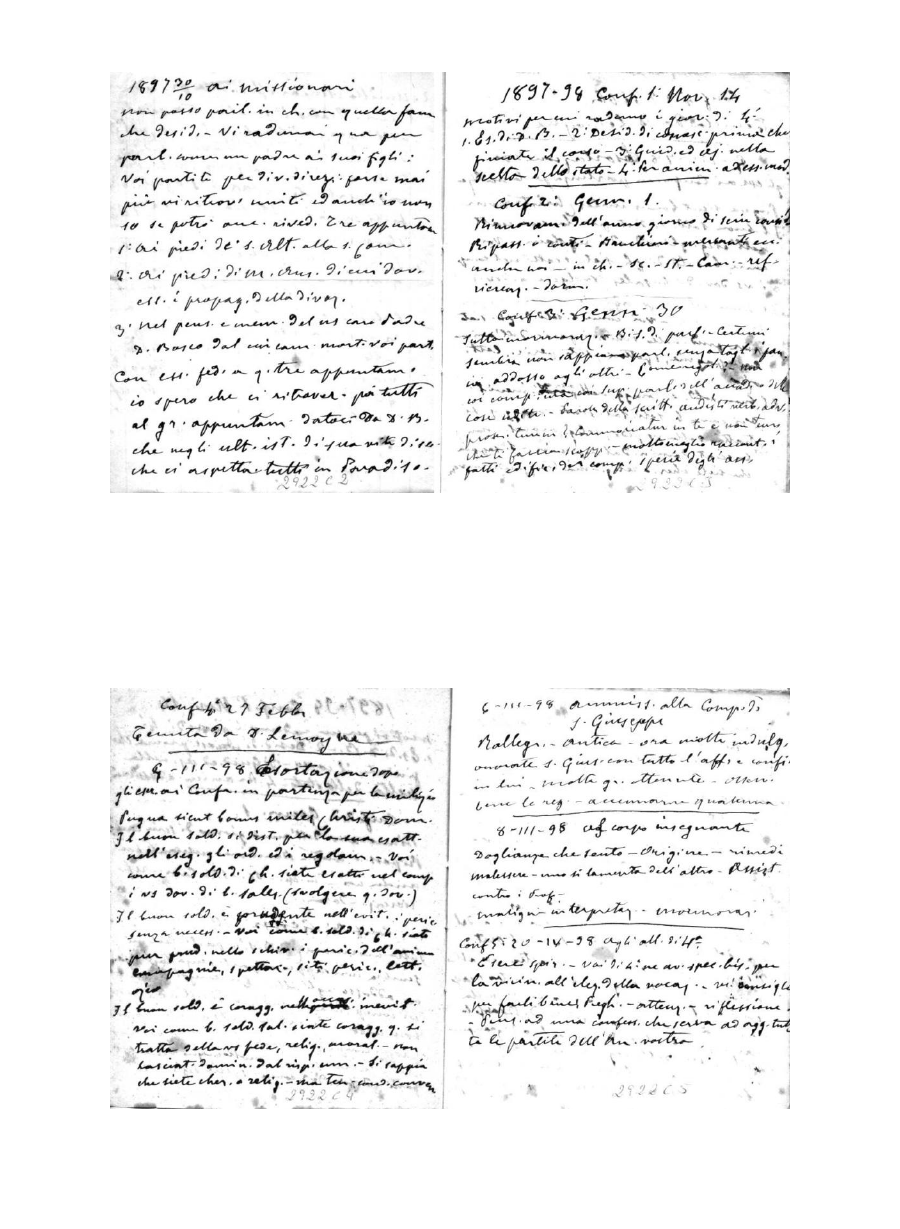 1897 30/10 ai missionari
non posso parl. in ch. con quella fam.
che desid. - Vi radunai qua per
parl. come un padre ai suoi figli:
Voi partite per div. direz. forse mai
più vi ritrov. uniti ed anch'io non
so se potrò anc. rived. Tre appuntam
1: Ai piedi de' s. Alt. alla s. Com.
2: Ai piedi di M. Aus. di cui dov.
ess. i propag. della divoz.
3: nel pens. e mem. del ns caro Padre
D. Bosco dal cui cam. mort. voi part.
Con ess. fed. a q. tre appuntam.
io spero che ci ritrover. poi tutti
al gr. appuntam. datoci da D. B.
che negli ult. ist. di sua vita disse
che ci aspetta tutti in Paradiso.
2922 C 2
1897-98 Conf. 1: Nov. 14
motivi per cui raduno i giov. di 4ª
1. Es. di D. B. - 2: Desid. di conosc. prima che
finiate il corso - 3: Guid. ed aj. nella
scelta dello stato - 4:
Conf. 2: Genn. 1.
Rinnovam. dell'anno giorno di
Ripass. i conti
anche noi - in ch. - sc. - st. - Cam. - ref
ricreaz. - dorm.
Conf. 3: Genn. 30
Sulla mormoraz. - Certuni
sembra non sappiano parl. senza tagl. i pan
ni addosso agli altri
molto meglio raccont. i
fatti edific. dei comp.
2922 C 3
Conf. 4: 27 Febbr
Tenuta da D. Lemoyne
6-III-98. Esortazione dopo
gli eserc. ai Confr. in partenza per la milizia
Pugna sicut bonus miles Christi Dom.
Il buon sold. si dist. per la sua esatt.
nell'eseg. gli ord. ed i regolam. - Voi
come b. sold. di Ch. siete esatti nel comp
i vs dov. di b. sales. (svolgere q. dov.)
Il buon sold. è prudente nell'evit. i peric
senza necess. - Voi come b. sold. di Ch. siate
pur prud. nello schiv. i peric. dell'anima
compagnie, spettac., siti peric., lett.
ozio
Il buon sold. è coragg. inevit.
Voi come b. sold. sal. siate coragg. q. si
tratta della vs fede, relig., moral. - non
lasciat. domin. dal risp. um. - Si sappia
che siete cher. o relig. - ma ten. cond. conven
2922 C 4
6-III-98 ammiss. alla Comp. di
S. Giuseppe
Rallegr. - antica - ora molte indulg.
onorate s. Gius con tutto l'aff. e confi.
in lui - molte gr. ottenute - osser.
bene le reg. -
8-III-98 al corpo insegnante
Doglianze che sento - Origine - rimedi
malessere - uno si lamenta dell'altro - Assist
contro i Prof.
maligne interpretaz. - mormoraz.
Conf. 5: 20-IV-98 agli all. di 4ª
Eserc. spir. - voi di 4ª ne av. spec. bis. per
la vicin. all'elez. della vocaz. - vi consiglio
per farli bene: Pregh. - attenz. - riflessione
- Pens. ad una confess. che serva ad agg. tut
te le partite dell'An. vostra
2922 C 5